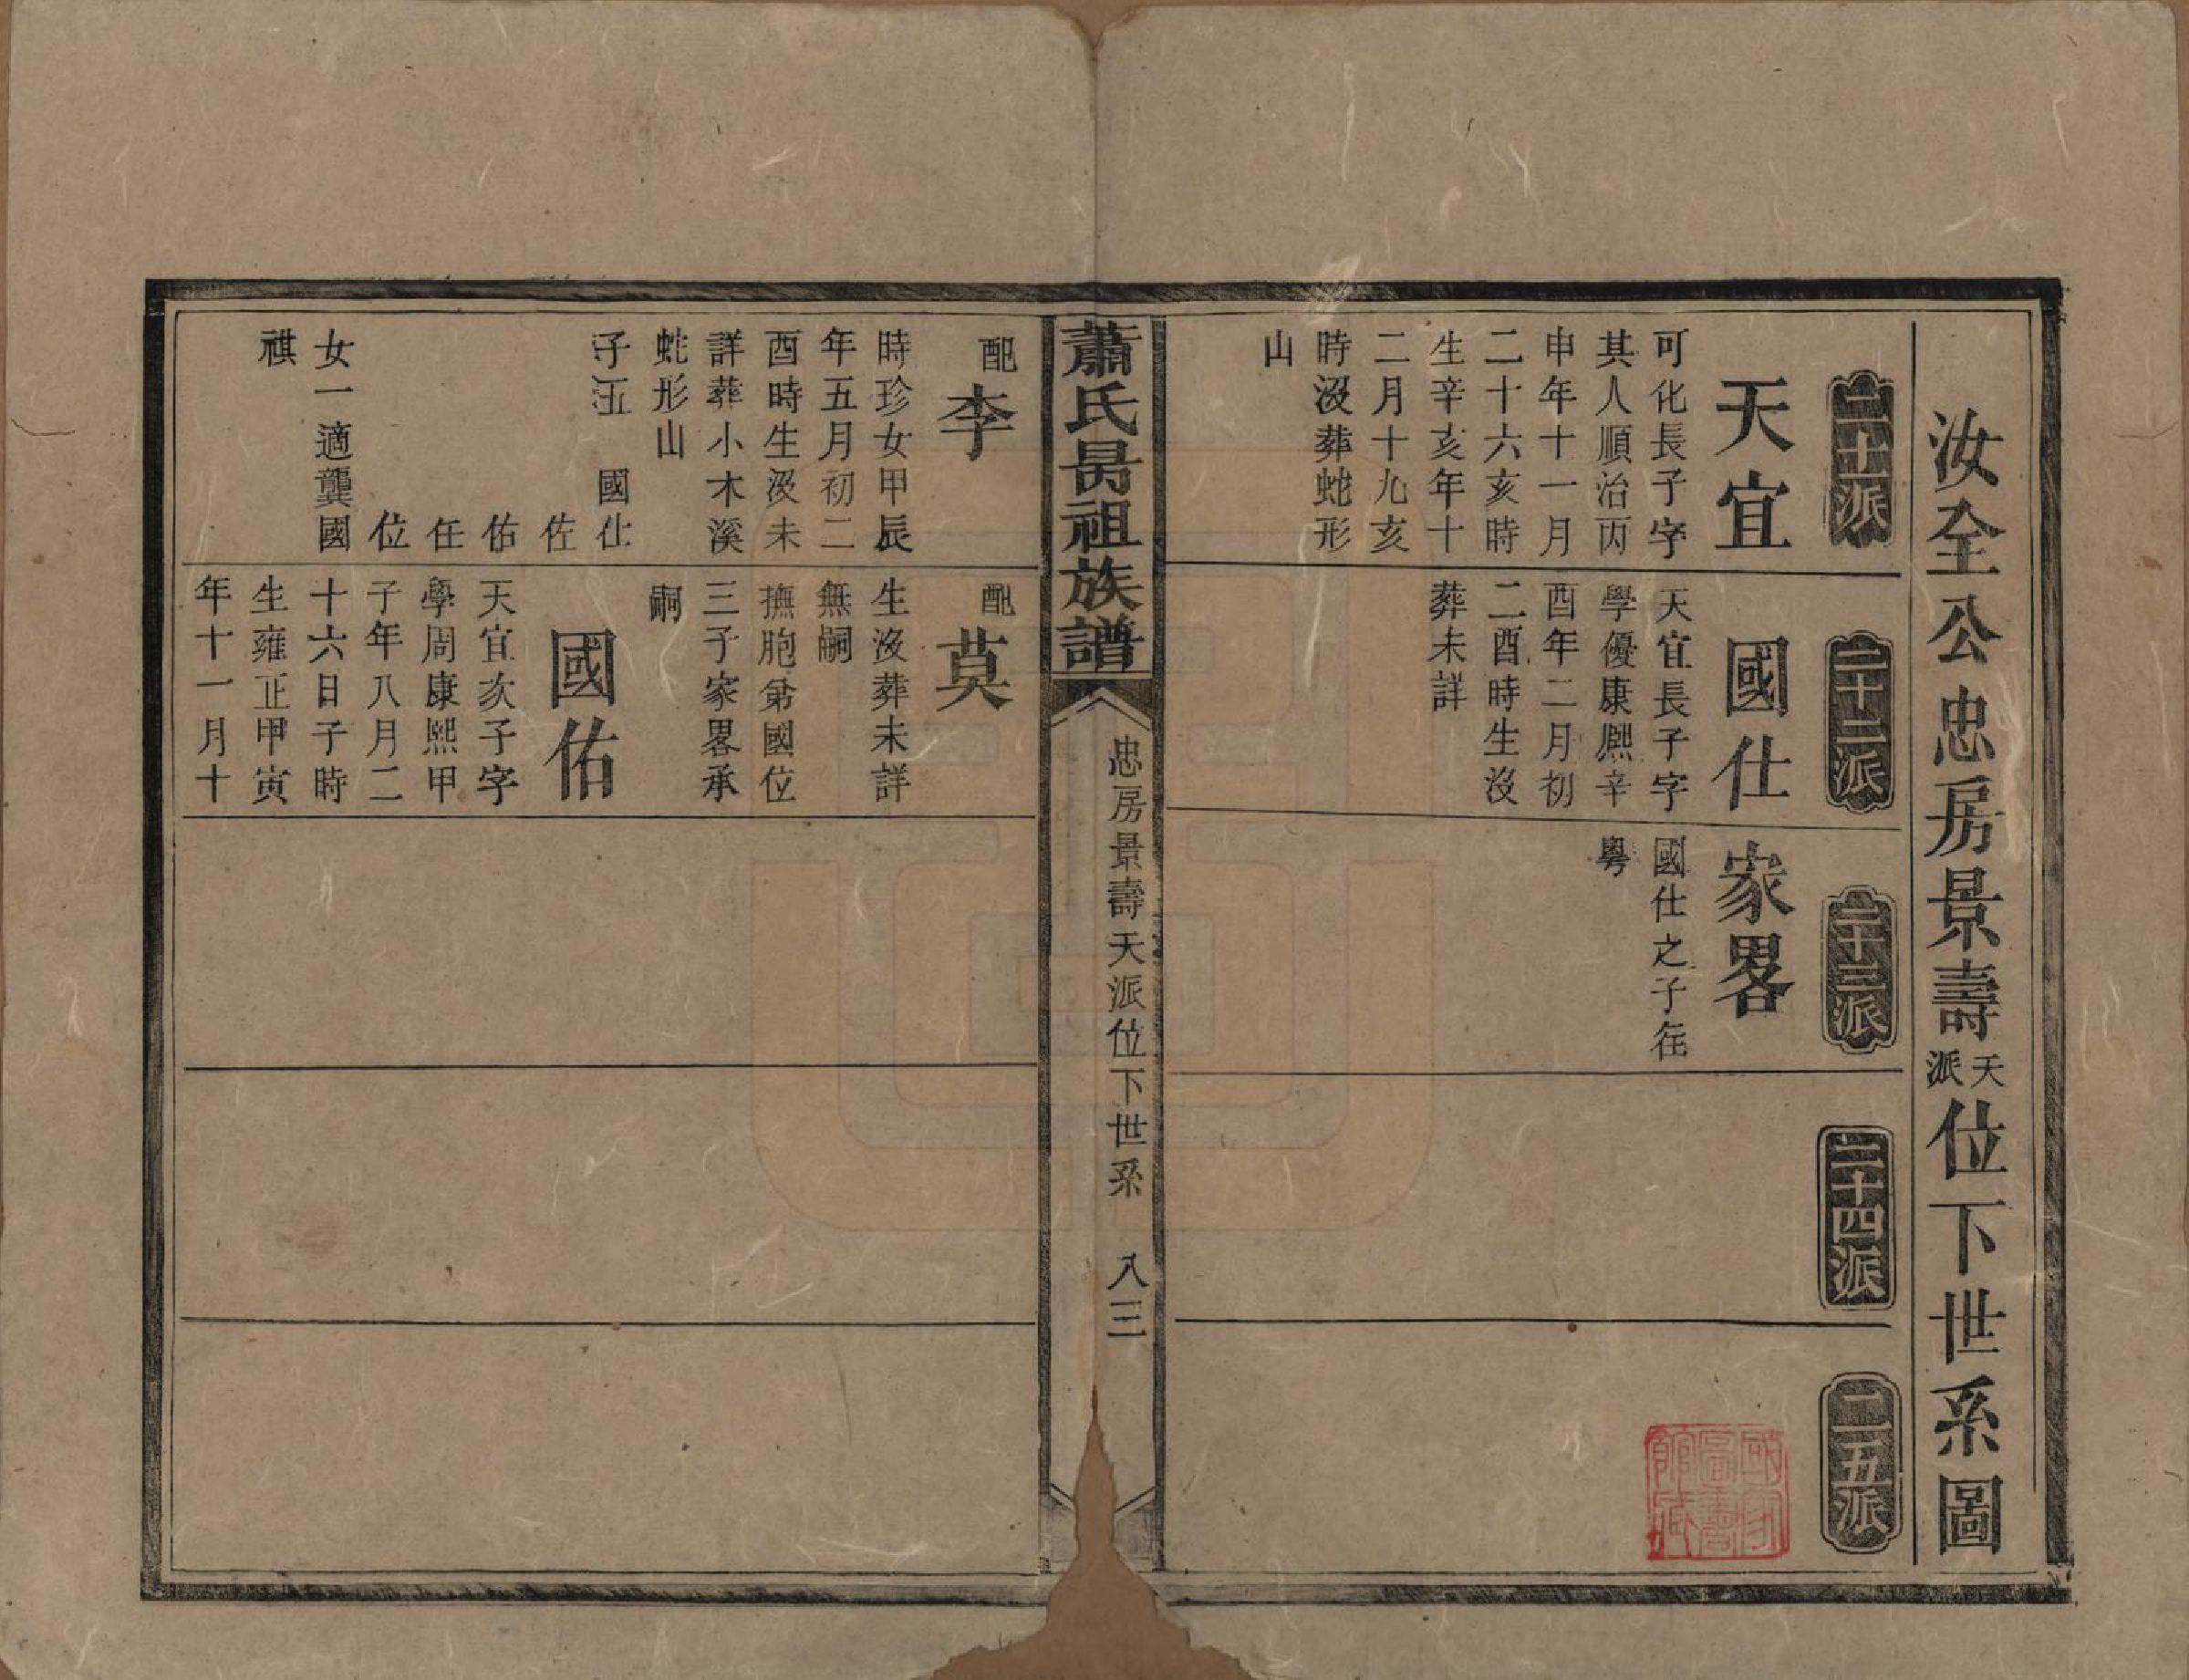 汝全公忠房景壽天派位下世系圖
二十派
天宜
可化長子字
其人順治丙
申年十一月
二十六亥時
生辛亥年十
二月十九亥
時沒葬蛇形
山
二十二派
國仕
天宜長子字
學優康熙辛
酉年二月初
二酉時生沒
葬未詳
二十三派
家畧
國仕之子在
粵
二十四派
二五派
國家圖書館藏
蕭氏昺祖族譜
忠房景壽天派位下世系
八三
配
李
時珍女甲辰
年五月初二
酉時生沒未
詳葬小木溪
蛇形山
子五 國仕
佐
佑
任
位
女一適龔國
祺
配
莫
生沒葬未詳
無嗣
撫胞弟國位
三子家畧承
嗣
國佑
天宜次子字
學周康熙甲
子年八月二
十六日子時
生雍正甲寅
年十一月十